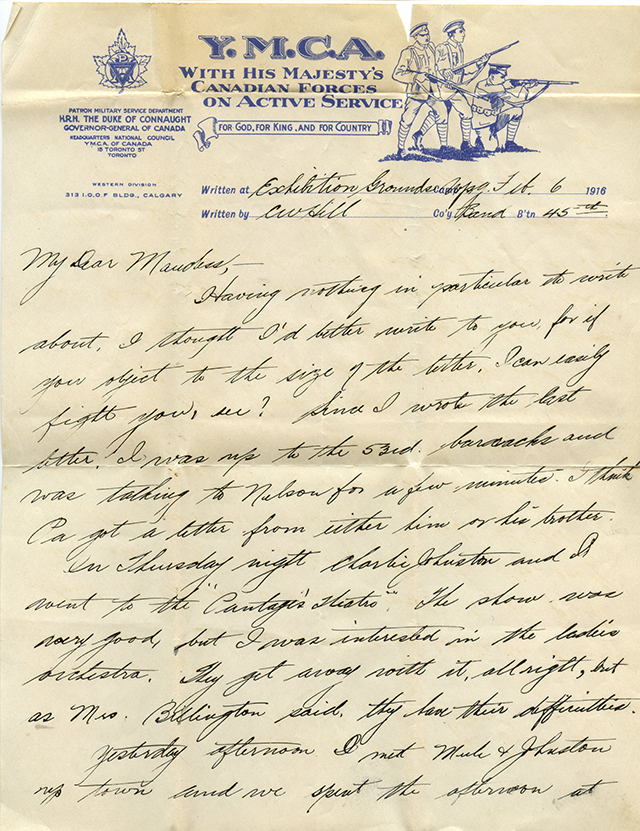 Y.M.C.A.
WITH HIS MAJESTY'S
CANADIAN FORCES
ON ACTIVE SERVICE
FOR GOD, FOR KING, AND FOR COUNTRY
PATRON MILITARY SERVICE DEPARTMENT
H.R.H. THE DUKE OF CONNAUGHT
GOVERNOR-GENERAL OF CANADA
HEADQUARTERS NATIONAL COUNCIL
Y.M.C.A. OF CANADA
15 TORONTO ST
TORONTO
WESTERN DIVISION
313 I.O.O.F BLDG., CALGARY
Written at Exhibition Grounds Camp Wpg. Feb. 6 1916
Written by CW Hill Co'y Band B'tn 45th
My Dear Maudess,-
Having nothing in particular to write
about, I thought I'd better write to you, for if
you object to the size of the letter, I can easily
fight you, see? Since I wrote the last
letter, I was up to the 53rd. barracks and
was talking to Nelson for a few minutes. I think
Pa got a letter from either him or his brother.
On Thursday night Charlie Johnston and I
went to the "Pantage's Theatre". The show was
very good, but I was interested in the ladies
orchestra. They get away with it, all right, but
as Mrs. Billington said, they have their difficulties.
Yesterday afternoon I met Mule & Johnston
up town and we spent the afternoon at